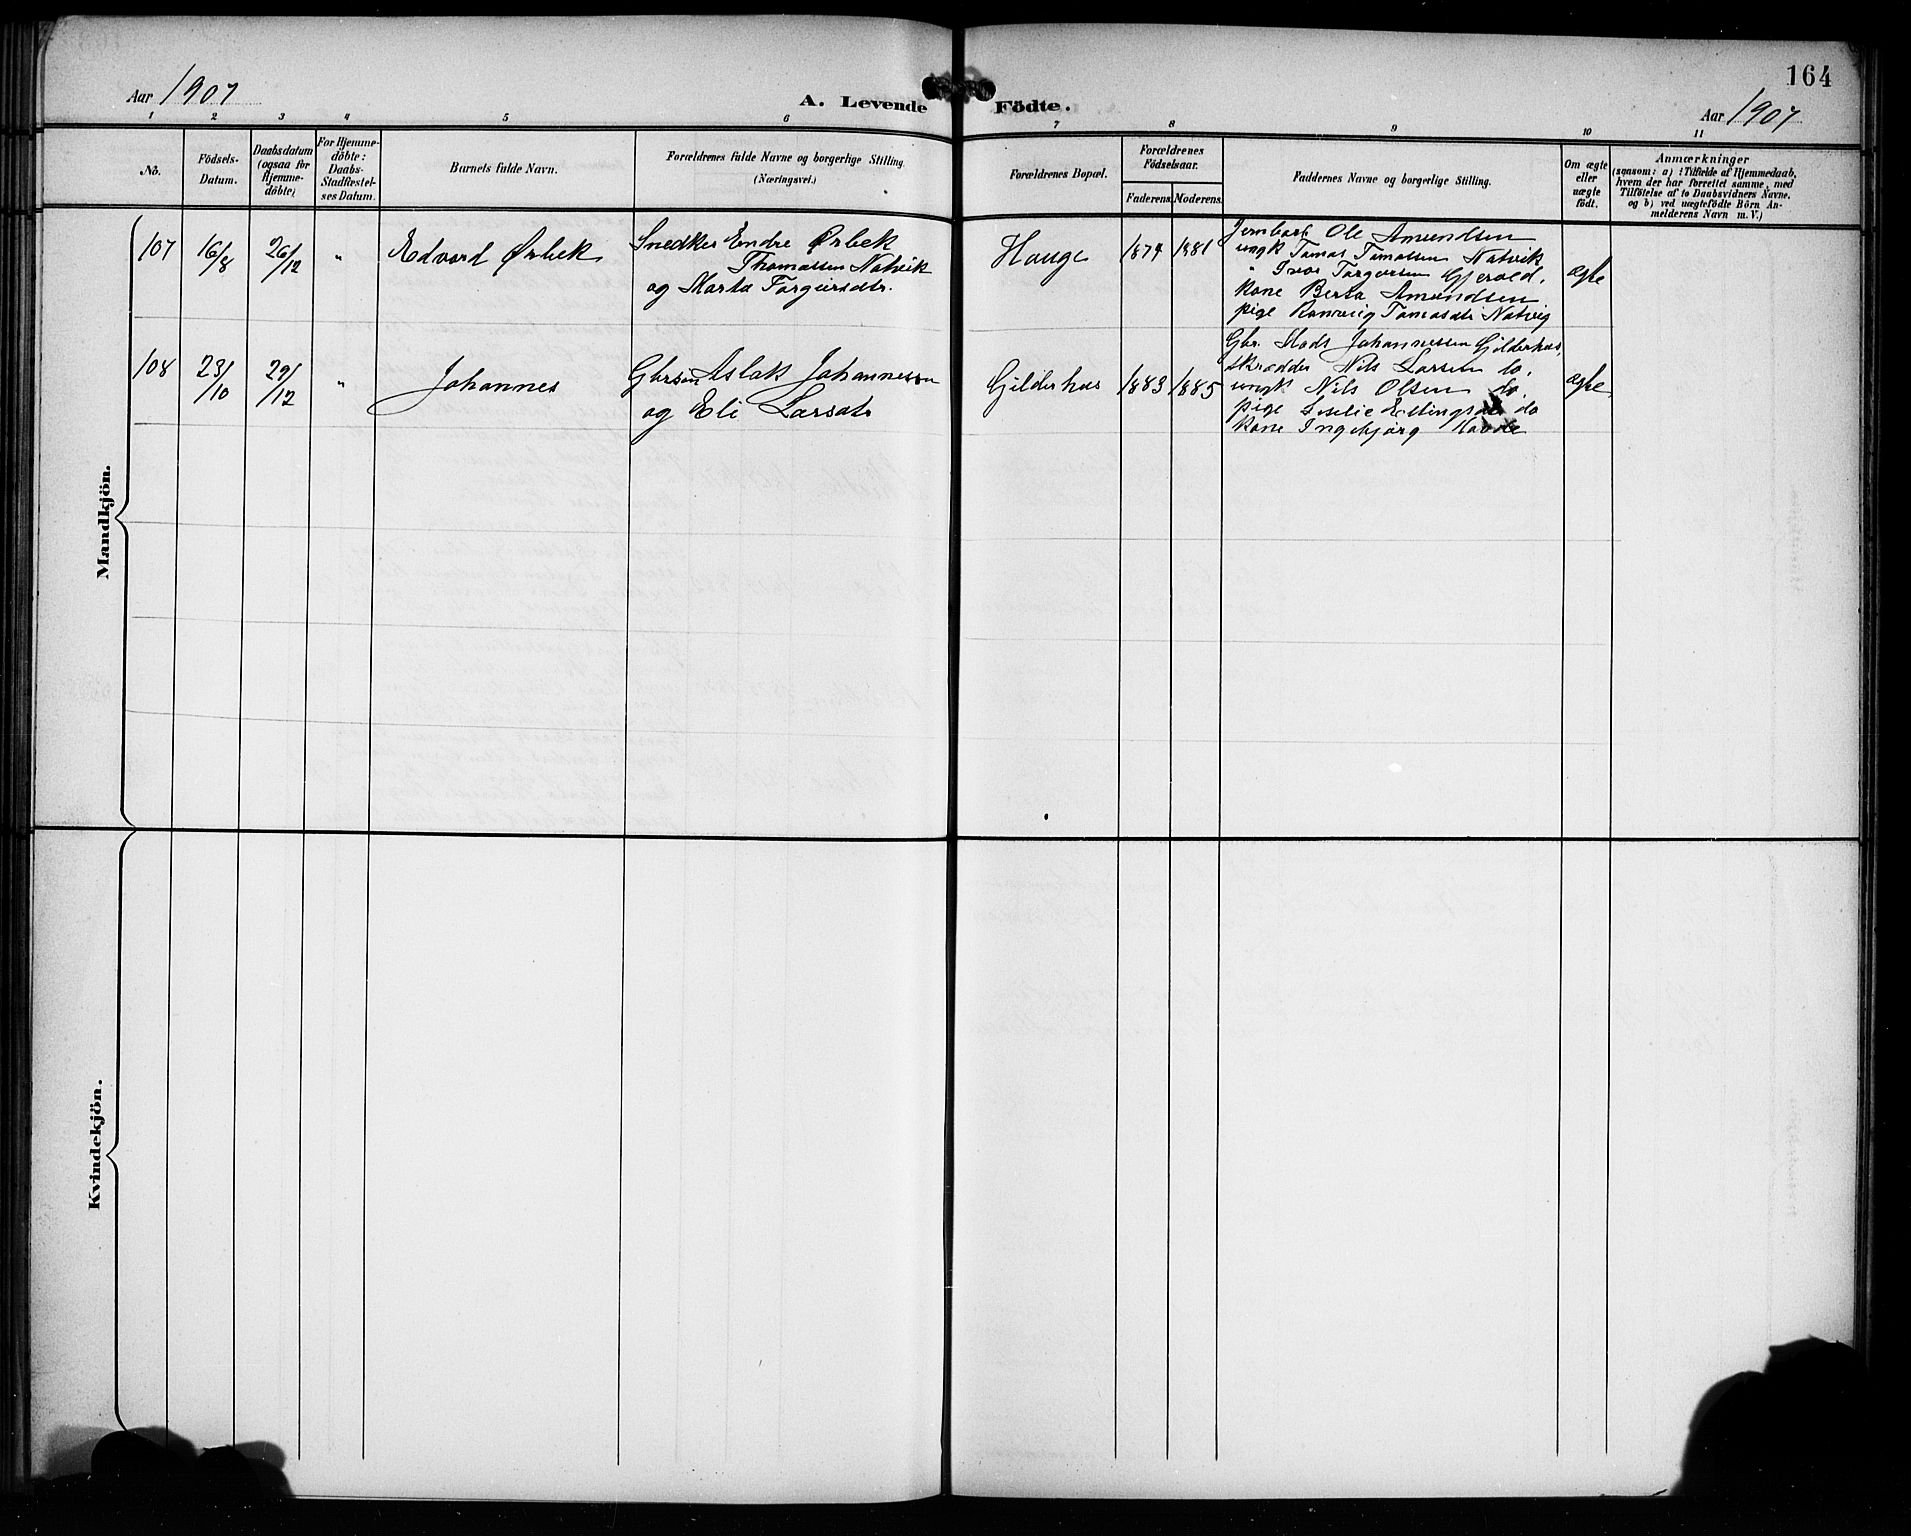 164
Aar 1907
A. Levende Födte.
Aar 1907
1 2 3 4 5 6 7 8 9 10 11
No.
Födsels-
Datum.
Daabsdatum
(ogsaa for
Hjemme-
döbte)
For Hjemme-
döbte:
Daabs-
Stadfæstel-
ses Datum.
Barnets fulde Navn.
Forældrenes fulde Navne og borgerlige Stilling.
(Næringsvei.)
Forældrenes Bopæl.
Forældrenes
Födselsaar.
Faderens. Moderens.
Faddernes Navne og borgerlige Stilling.
Om ægte
eller
uægte
födt.
Anmærkninger
(saasom: a) i Tilfælde af Hjemmedaab,
hvem der har forrettet samme, med
Tilföielse af to Daabsvidners Navne.
og b) ved uægtefödte Börn An-
melderens Navn m. V.)
Mandkjön.
107 16/8 26/12 " Edvard Ørbek
Snedker Endre Ørbek
Thomassen Natvik
og Marta Torgersdtr.
Hauge 1874 1881
Ole Amundsen
ungk Tomas Tomassen Natvik
" Ivar Torgersen Gjerald.
kone Berta Amundsen
pige Ranveig Tomasdtr Natvig
ægte
108 23/10 29/12 " Johannes
Gbrsøn Aslak Johannesson
og Eli Larsdtr
Gilderhus 1883 1885
Gbr. Mads Johannessen Gilderhus,
skrædder Nils Larsen do,
ungk Nils Olsen do.
pige Sesilie Ellingsdtr do
kone Ingebjørg Haade
ægte
Kvindekjön.